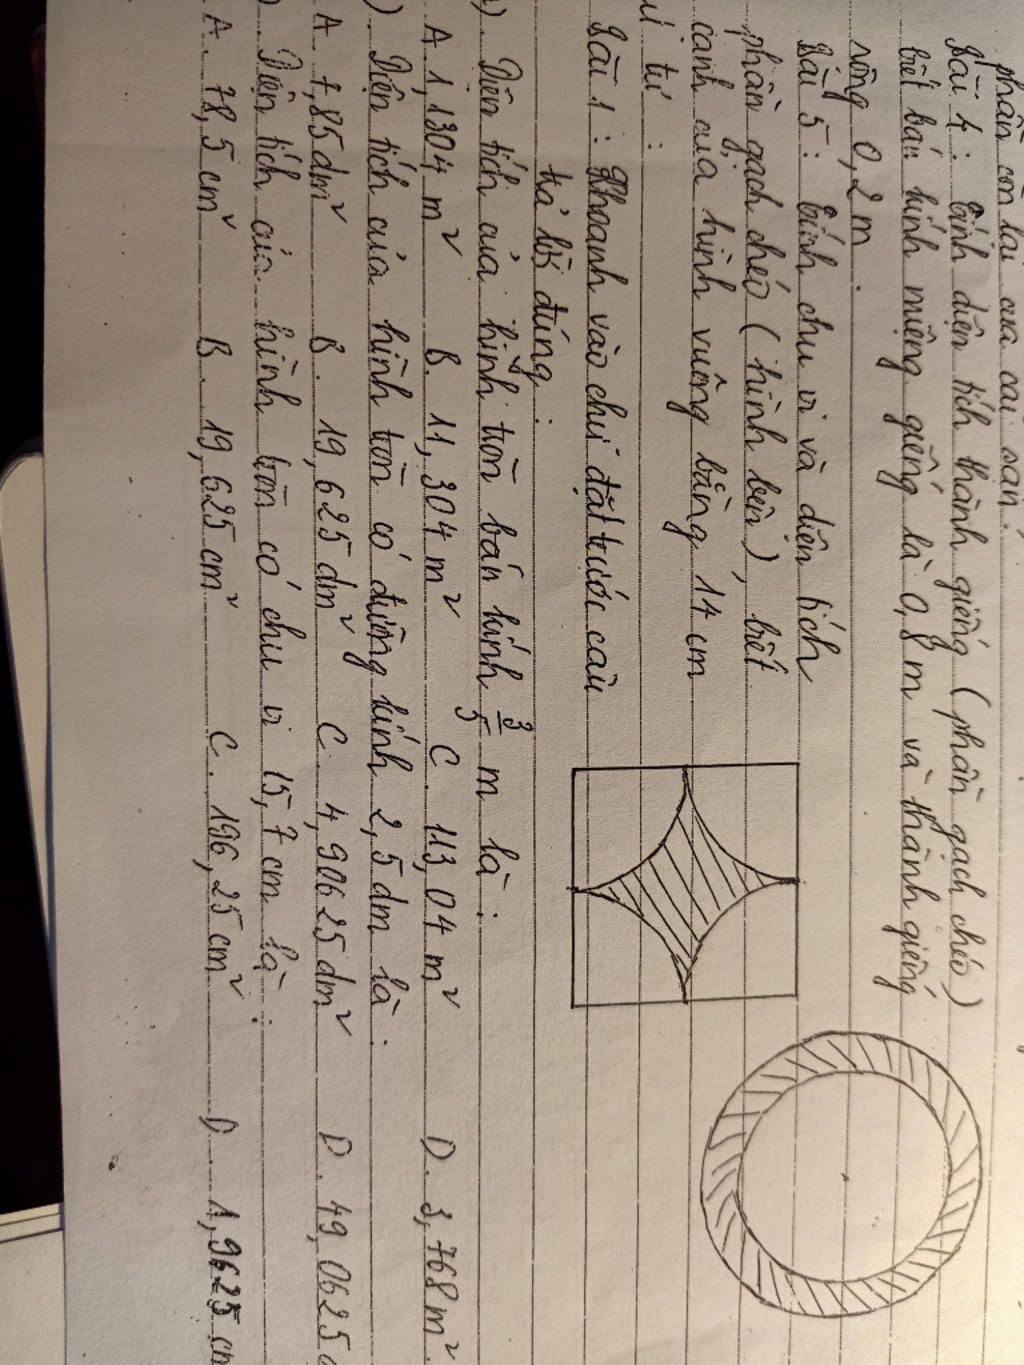 phần còn lại của cái sân.
Bài 4: Tính diện tích thành giếng (phần gạch chéo)
biết bán kính miệng giếng là 0,8 m và thành giếng
rộng 0,2 m.
Bài 5: Tính chu vi và diện tích
phần gạch chéo (hình bên), biết
cạnh của hình vuông bằng 14 cm
tư:
Bài 1: Khoanh vào chữ đặt trước câu
trả lời đúng:
a). Diện tích của hình tròn bán kính 3/5 m là:
A. 1,1304 m² B. 11,304 m² C. 113,04 m² D. 3,768 m².
). Diện tích của hình tròn có đường kính 2,5 dm là:
A. 7,85 dm² B. 19,625 dm² C. 4,90625 dm² D. 49,0625
). Diện tích của hình tròn có chu vi 15,7 cm là:
A. 78,5 cm² B. 19,625 cm² C. 196,25 cm² D. 1,9625 cm